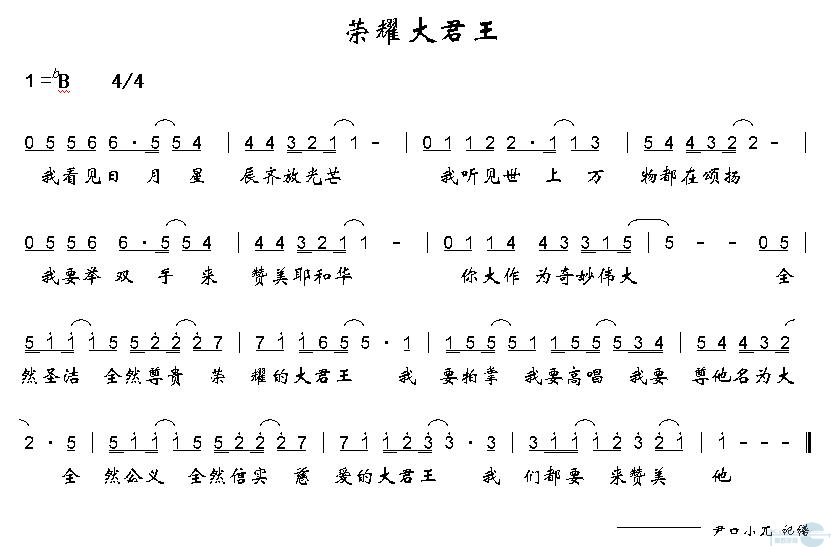 荣耀大君王
1=bB 4/4
0 5 5 6 6 · 5 5 4 | 4 4 3 2 1 1 - | 0 1 1 2 2 · 1 1 3 | 5 4 4 3 2 2 - |
我看见日月星辰齐放光芒 我听见世上万物都在颂扬
0 5 5 6 6 · 5 5 4 | 4 4 3 2 1 1 - | 0 1 1 4 4 3 3 1 5 | 5 - - 0 5 |
我要举双手来赞美耶和华 你大作为奇妙伟大 全
5 1 1 1 5 5 2 2 2 7 | 7 1 1 6 5 5 · 1 | 1 5 5 5 1 1 5 5 5 3 4 | 5 4 4 3 2
然圣洁 全然尊贵 荣耀的大君王 我要拍掌 我要高唱 我要尊他名为大
2 · 5 | 5 1 1 1 5 5 2 2 2 7 | 7 1 1 2 3 3 · 3 | 3 1 1 1 2 3 2 1 | 1 - - - ‖
全然公义 全然信实 慈爱的大君王 我们都要来赞美他
尹口小兀 记谱